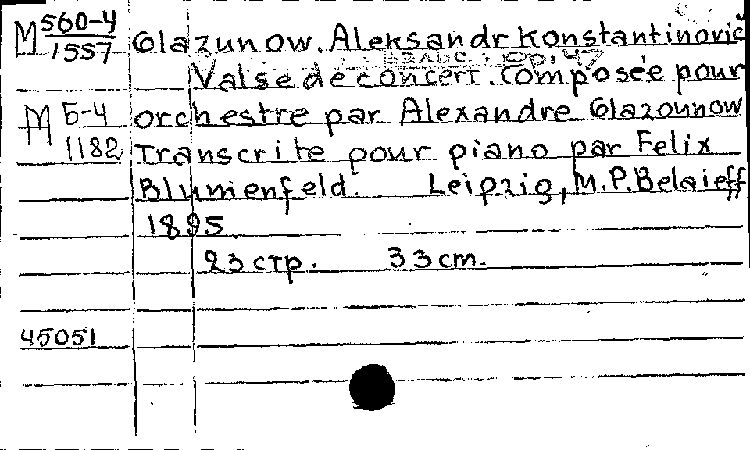 М 560-4
1557
Glazunow. Aleksandr Konstantinovič
Op. 47
Valse de concert. Composée pour
М Б-4
1182
orchestre par Alexandre Glazounow
Transcrite pour piano par Felix
Blumenfeld. Leipzig, M.P. Belaieff
1895
23 стр. 33 cm.
45051